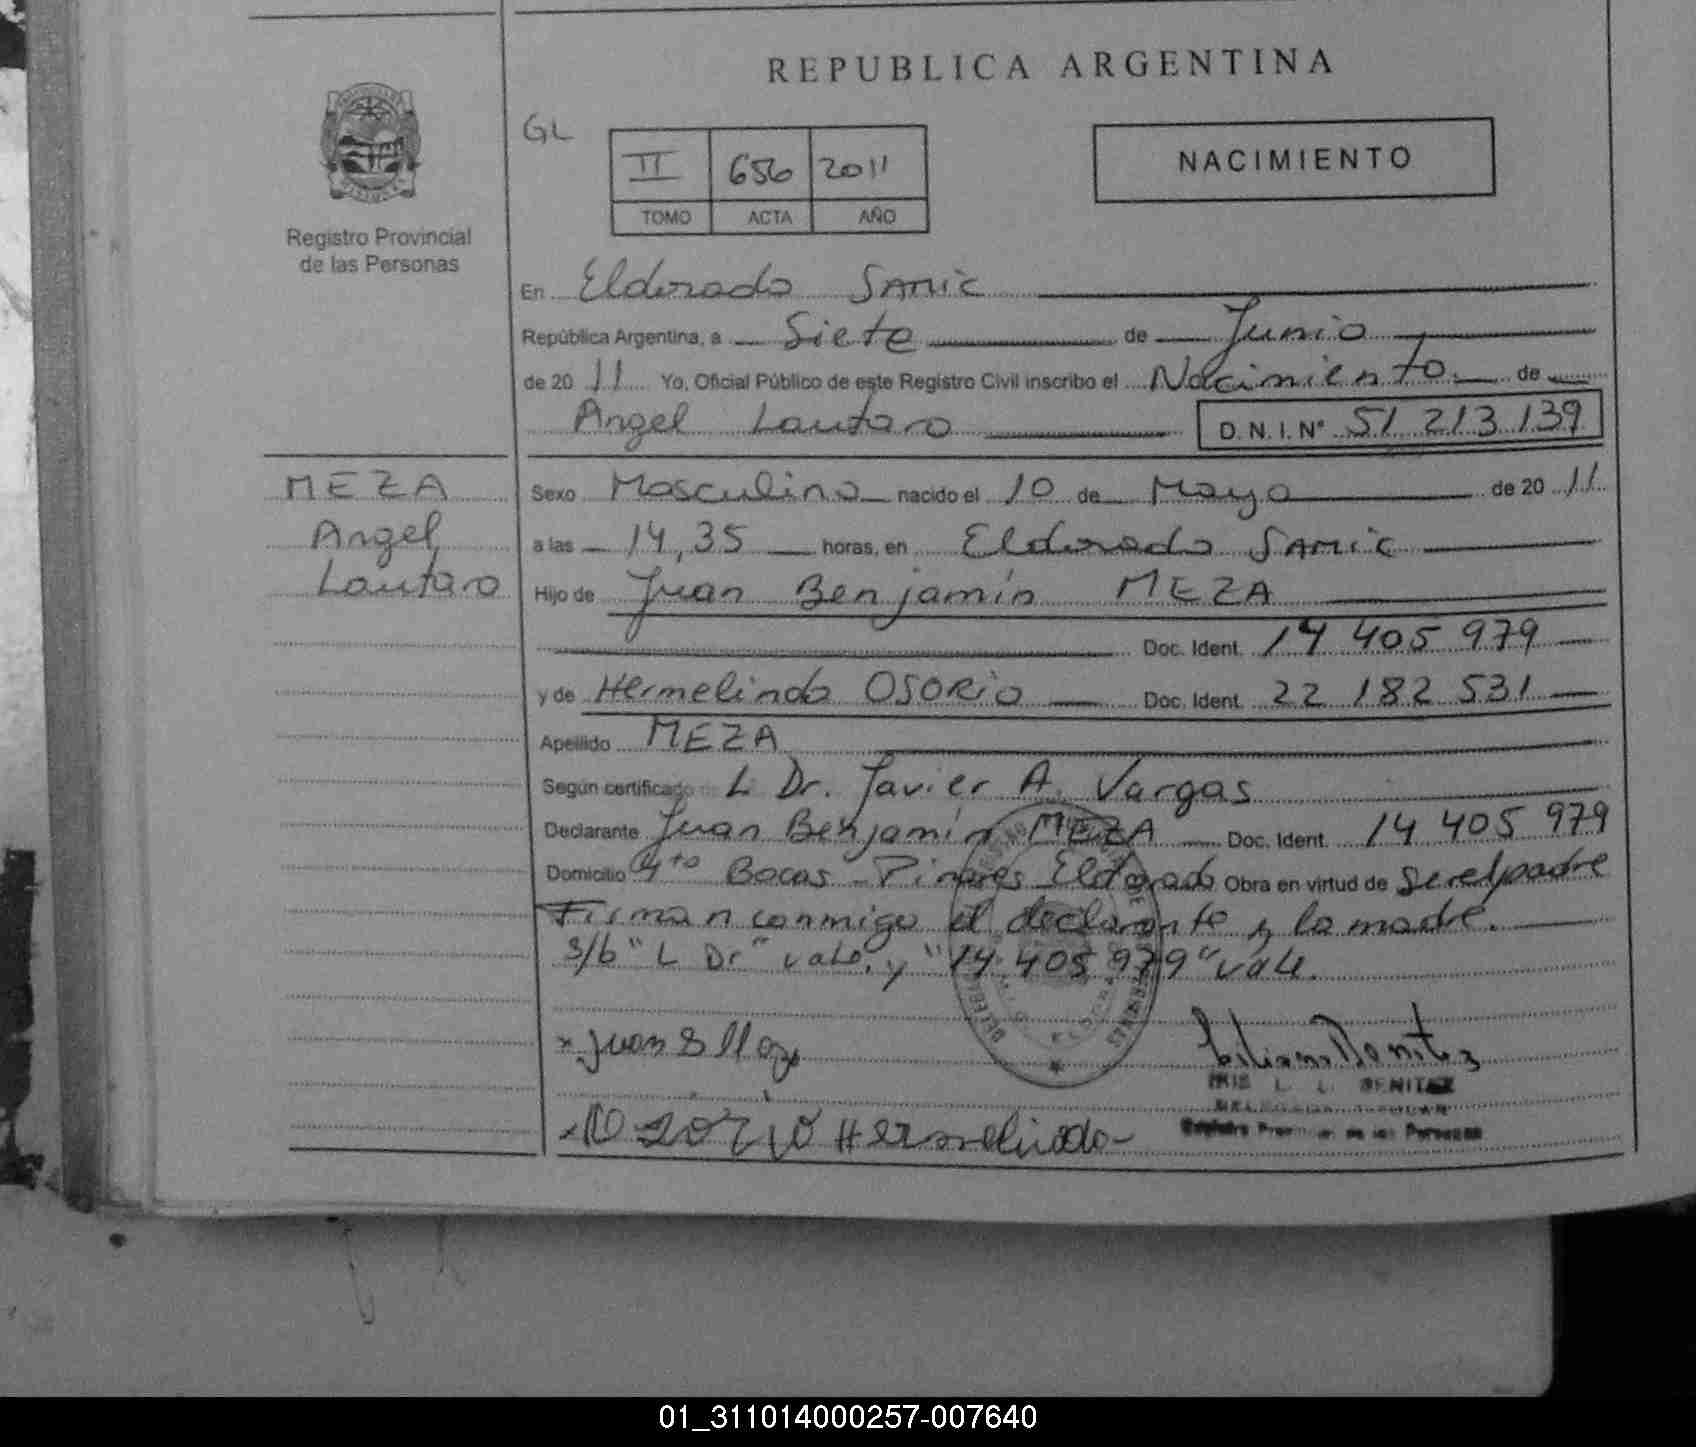 REPUBLICA ARGENTINA
GL
II 656 2011
TOMO ACTA AÑO
NACIMIENTO
Registro Provincial
de las Personas
En Eldorado SAMIC
República Argentina, a Siete de Junio
de 20 11 Yo, Oficial Público de este Registro Civil inscribo el Nacimiento de
Angel Lautaro D.N.I. Nº 51 213 139
MEZA
Angel
Lautaro
Sexo Masculino nacido el 10 de Mayo de 20 11
a las 14,35 horas, en Eldorado SAMIC
Hijo de Juan Benjamín MEZA
Doc. Ident. 14 405 979
y de Hermelinda OSORIO Doc. Ident. 22 182 531
Apellido MEZA
Según certificado L Dr. Javier A. Vargas
Declarante Juan Benjamín MEZA Doc. Ident. 14 405 979
Domicilio 4to Bocas - Pinares Eldorado Obra en virtud de ser el padre
Firman conmigo el declarante y la madre.
s/b "L Dr" vale, y "14 405 979" vale.
IRIS L. L. BENITEZ
Registro Provincial de las Personas
01_311014000257-007640